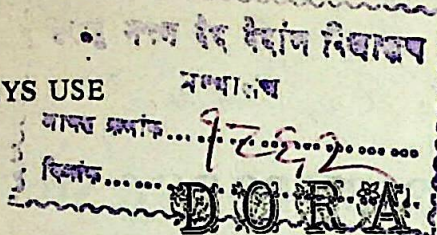 भवन वेद वेदांग विद्यालय
YS USE ग्रन्थालय
आगत क्रमांक......१८६२......
दिनांक......
DORA